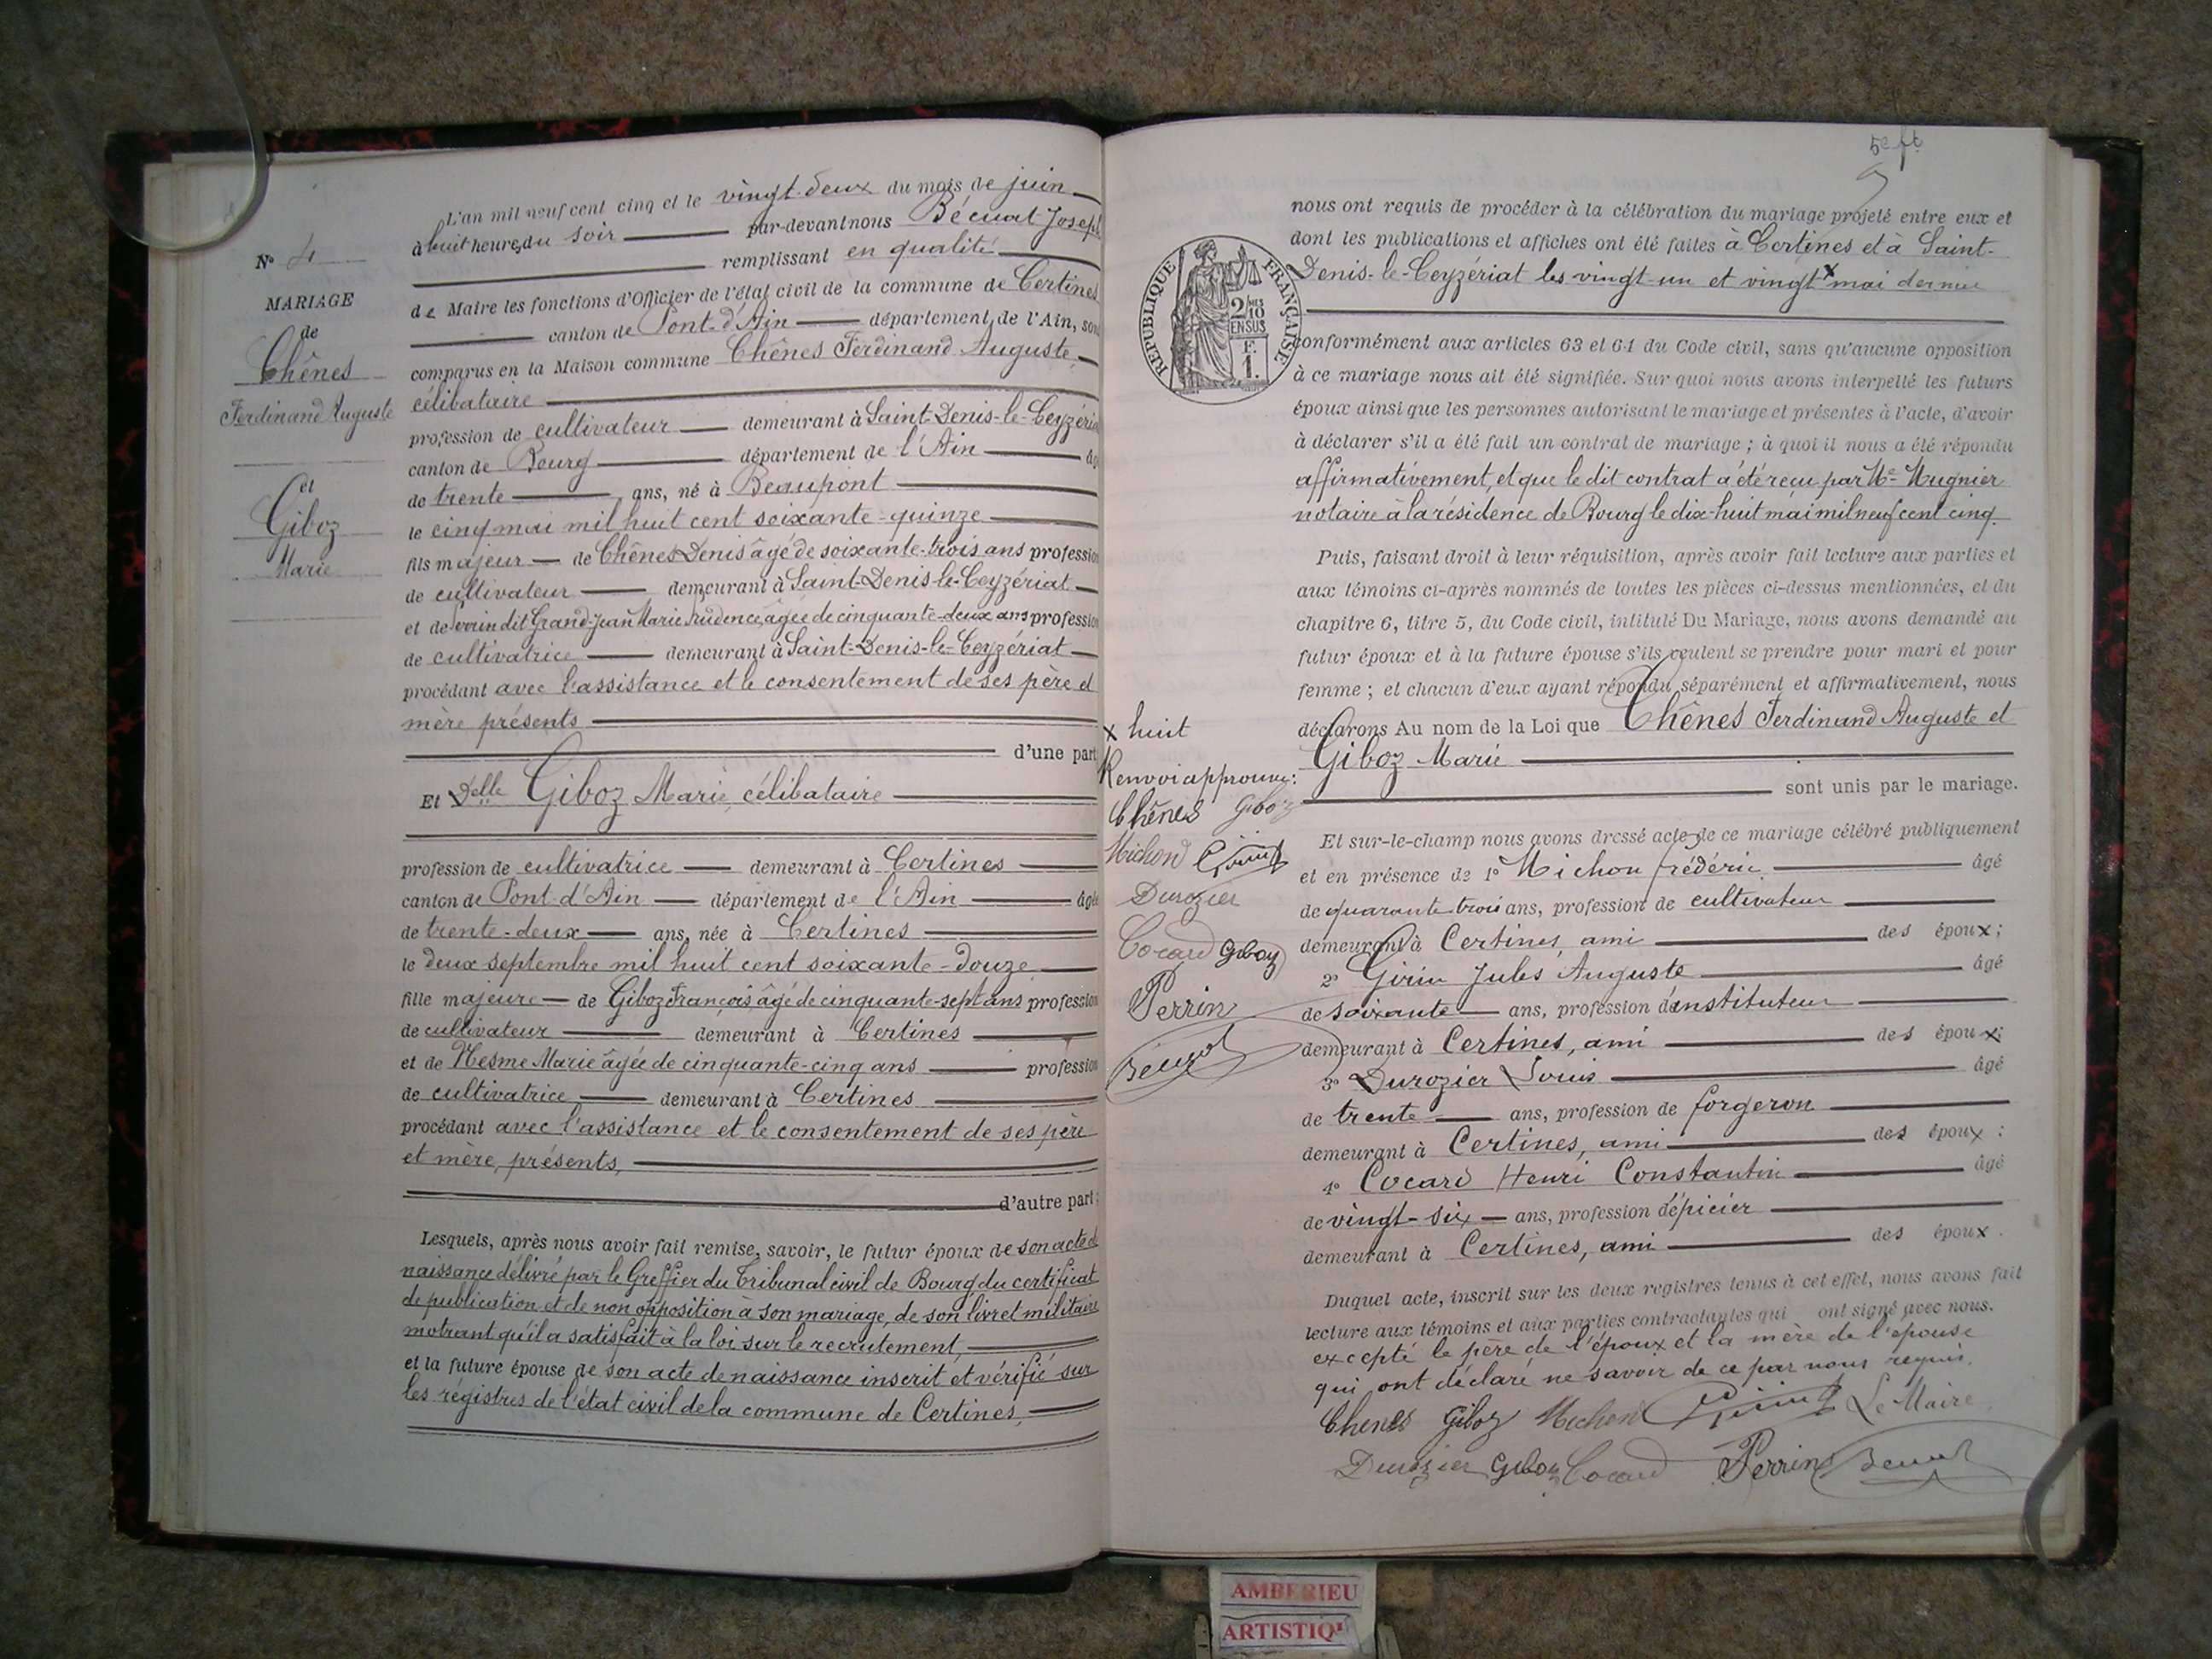 N° 4
MARIAGE
de
Chênes
Ferdinand Auguste
et
Giboz
Marie
L'an mil neuf cent cinq et le vingt-deux du mois de juin
à huit heures du soir par-devant nous Bécuat Joseph
remplissant en qualité
de Maire les fonctions d'Officier de l'état civil de la commune de Certines
canton de Pont-d'Ain département de l'Ain, sont
comparus en la Maison commune Chênes Ferdinand Auguste
célibataire
profession de cultivateur demeurant à Saint-Denis-le-Ceyzériat
canton de Bourg département de l'Ain âgé
de trente ans, né à Beaupont
le cinq mai mil huit cent soixante-quinze
fils majeur de Chênes Denis âgé de soixante-trois ans profession
de cultivateur demeurant à Saint-Denis-le-Ceyzériat
et de dit Grand-Jean Marie Prudence, âgée de cinquante-deux ans profession
de cultivatrice demeurant à Saint-Denis-le-Ceyzériat
procédant avec l'assistance et le consentement de ses père et
mère présents
d'une part
Et Delle Giboz Marie, célibataire
profession de cultivatrice demeurant à Certines
canton de Pont-d'Ain département de l'Ain âgée
de trente-deux ans, née à Certines
le deux septembre mil huit cent soixante-douze
fille majeure de Giboz François âgé de cinquante-sept ans profession
de cultivateur demeurant à Certines
et de Nesme Marie âgée de cinquante-cinq ans profession
de cultivatrice demeurant à Certines
procédant avec l'assistance et le consentement de ses père
et mère, présents,
d'autre part;
Lesquels, après nous avoir fait remise, savoir, le futur époux de son acte de
naissance délivré par le Greffier du Tribunal civil de Bourg, du certificat
de publication et de non opposition à son mariage, de son livret militaire
motrant qu'il a satisfait à la loi sur le recrutement,
et la future épouse de son acte de naissance inscrit et vérifié sur
les régistres de l'état civil de la commune de Certines,
5e ft
nous ont requis de procéder à la célébration du mariage projeté entre eux et
dont les publications et affiches ont été faites à Certines et à Saint-
Denis-le-Ceyzériat les vingt-un et vingt x mai dernier
REPUBLIQUE FRANÇAISE
2/10
EN SUS
F.
1.
conformément aux articles 63 et 64 du Code civil, sans qu'aucune opposition
à ce mariage nous ait été signifiée. Sur quoi nous avons interpellé les futurs
époux ainsi que les personnes autorisant le mariage et présentes à l'acte, d'avoir
à déclarer s'il a été fait un contrat de mariage ; à quoi il nous a été répondu
affirmativement, et que le dit contrat a été reçu par Me Mugnier
notaire à la résidence de Bourg le dix-huit mai mil neuf cent cinq.
Puis, faisant droit à leur réquisition, après avoir fait lecture aux parties et
aux témoins ci-après nommés de toutes les pièces ci-dessus mentionnées, et du
chapitre 6, titre 5, du Code civil, intitulé Du Mariage, nous avons demandé au
futur époux et à la future épouse s'ils veulent se prendre pour mari et pour
femme ; et chacun d'eux ayant répondu séparément et affirmativement, nous
déclarons Au nom de la Loi que Chênes Ferdinand Auguste et
Giboz Marie
sont unis par le mariage.
x huit
Renvoi approuvé:
Chênes Giboz
Michon Girin
Durozier
Cocard Giboz
Perrin
Bécuat
Et sur-le-champ nous avons dressé acte de ce mariage célébré publiquement
et en présence de 1° Michon Frédéric âgé
de quarante-trois ans, profession de cultivateur
demeurant à Certines, ami des époux;
2° Girin Jules Auguste âgé
de soixante ans, profession d'instituteur
demeurant à Certines, ami des époux;
3° Durozier Louis âgé
de trente ans, profession de forgeron
demeurant à Certines, ami des époux;
4° Cocard Henri Constantin âgé
de vingt-six ans, profession d'épicier
demeurant à Certines, ami des époux.
Duquel acte, inscrit sur les deux registres tenus à cet effet, nous avons fait
lecture aux témoins et aux parties contractantes qui ont signé avec nous.
excepté le père de l'époux et la mère de l'épouse
qui ont déclaré ne savoir de ce par nous requis.
Chenes Giboz Michon Girin Le Maire
Durozier Giboz Cocard Perrin Bécuat
AMBERIEU
ARTISTIQ